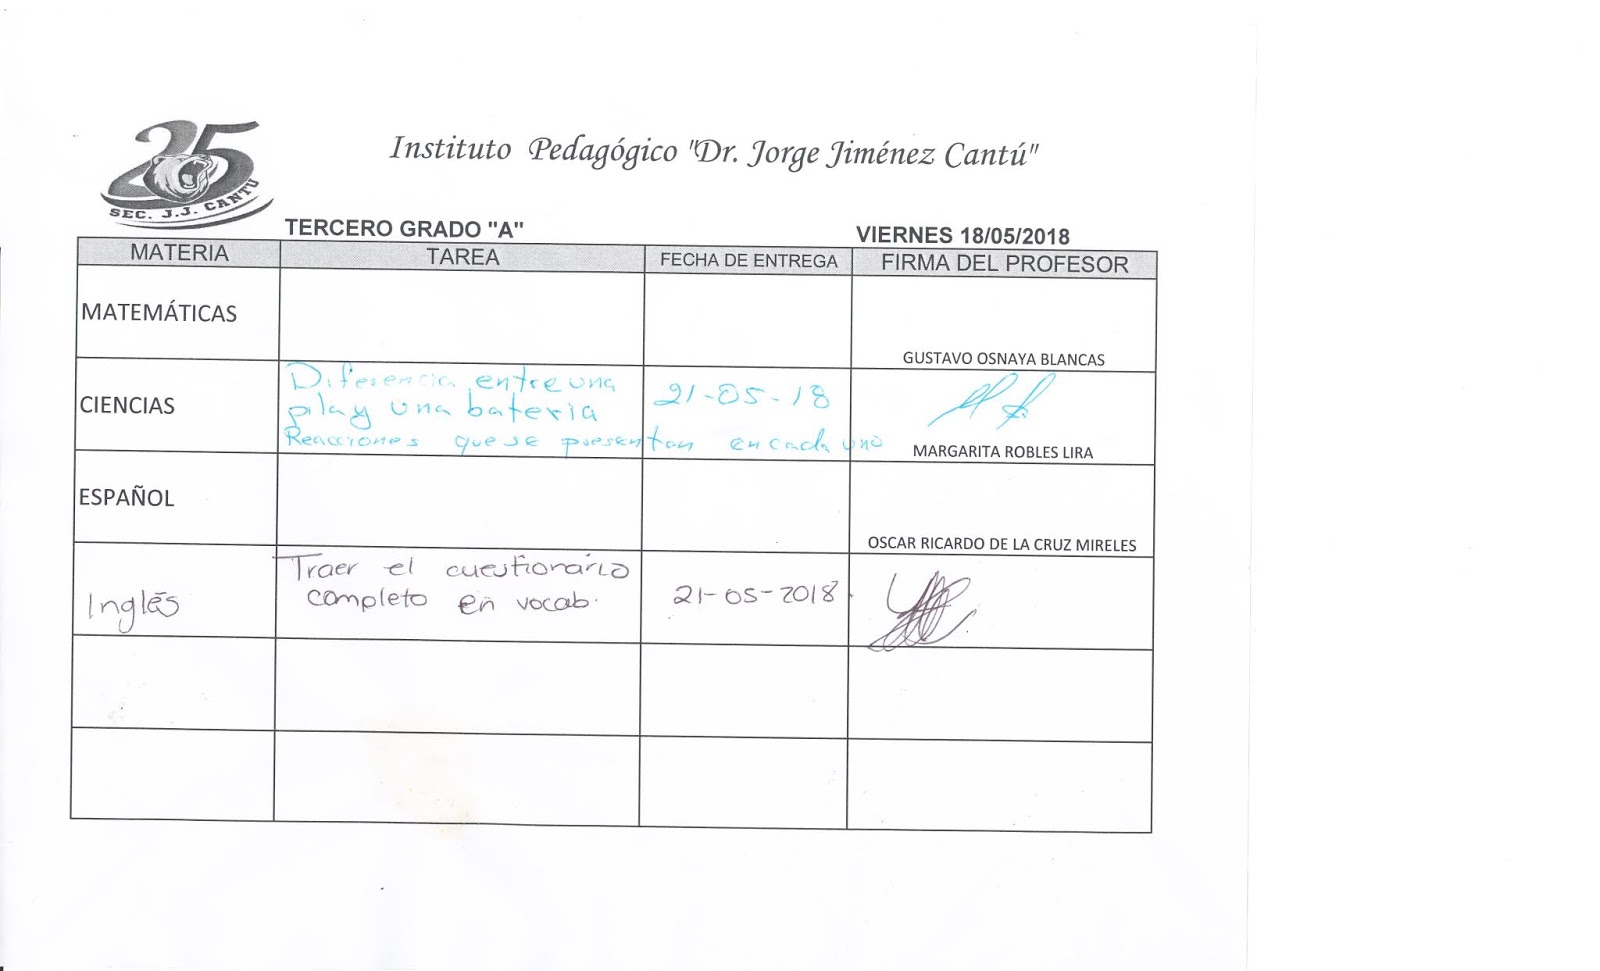 25
SEC. J.J. CANTÚ
Instituto Pedagógico "Dr. Jorge Jiménez Cantú"
TERCERO GRADO "A"
VIERNES 18/05/2018
MATERIA TAREA FECHA DE ENTREGA FIRMA DEL PROFESOR
MATEMÁTICAS
GUSTAVO OSNAYA BLANCAS
CIENCIAS
Diferencia entre una
pila y una bateria
Reacciones que se presentan en cada uno
21-05-18
MARGARITA ROBLES LIRA
ESPAÑOL
OSCAR RICARDO DE LA CRUZ MIRELES
Inglés
Traer el cuestionario
completo en vocab.
21-05-2018